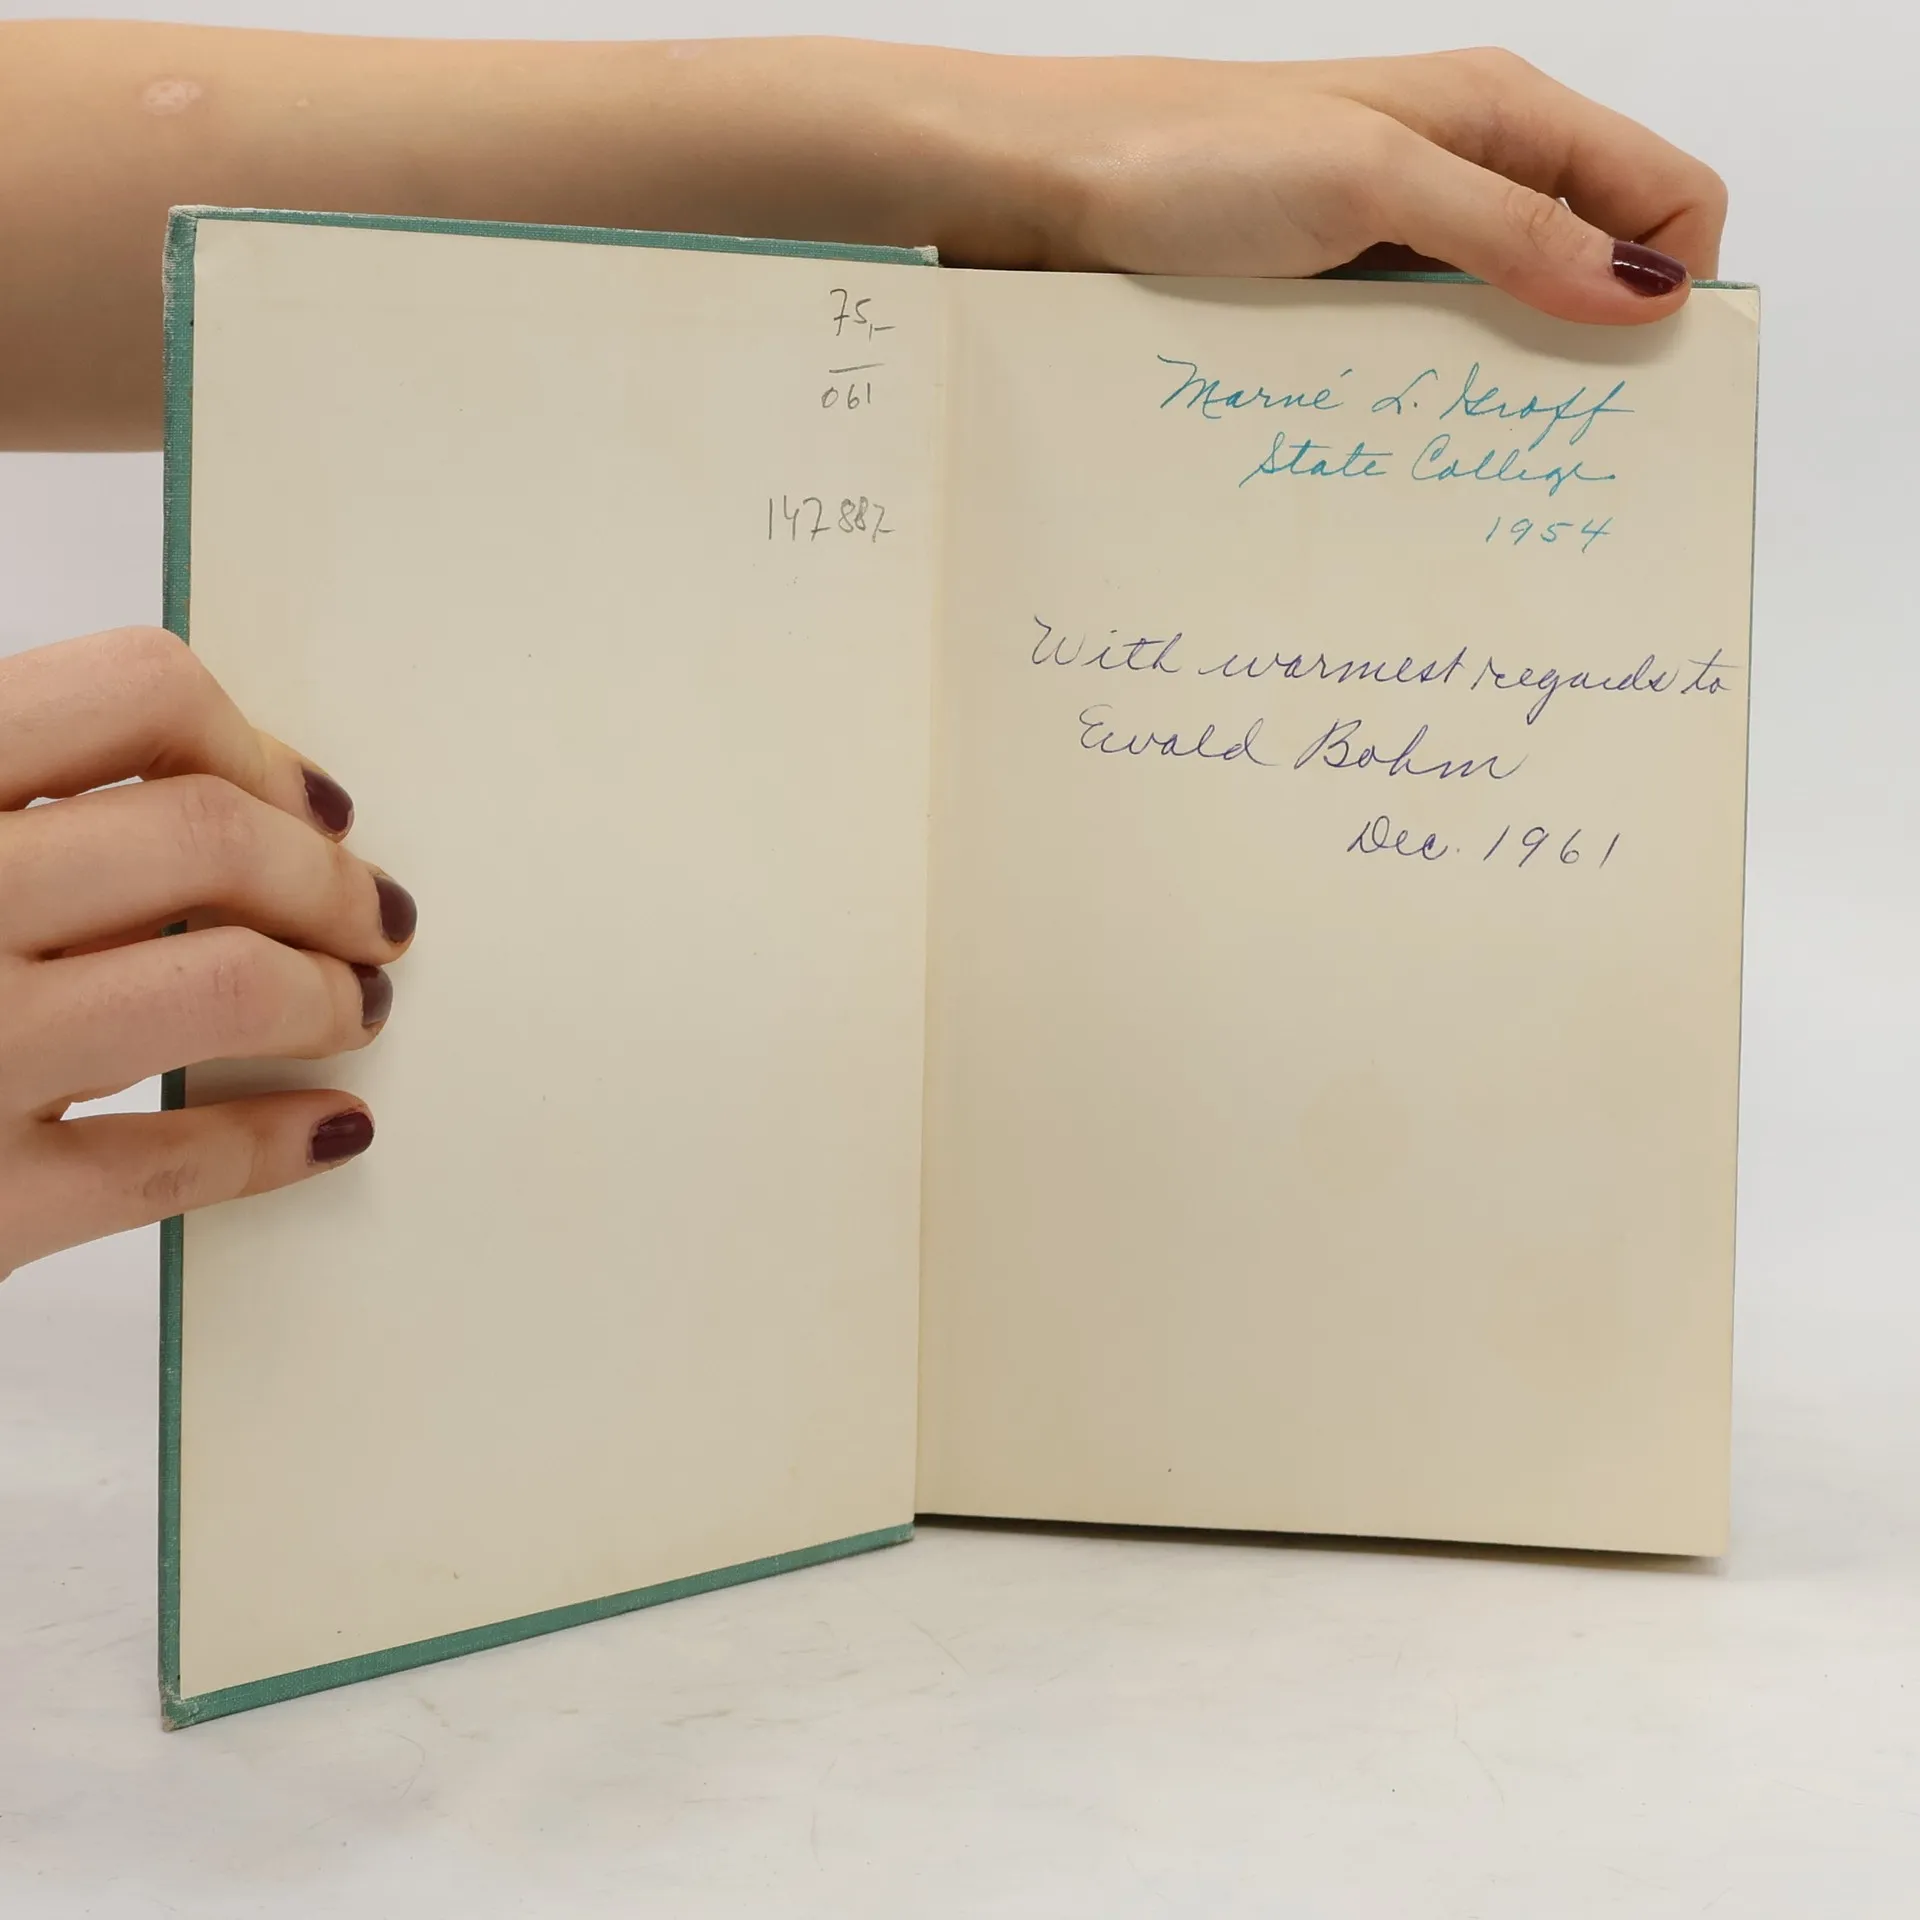 75,-
061
147887
Marné L. Groff
State College
1954
With warmest regards to
Ewald Bohm
Dec. 1961